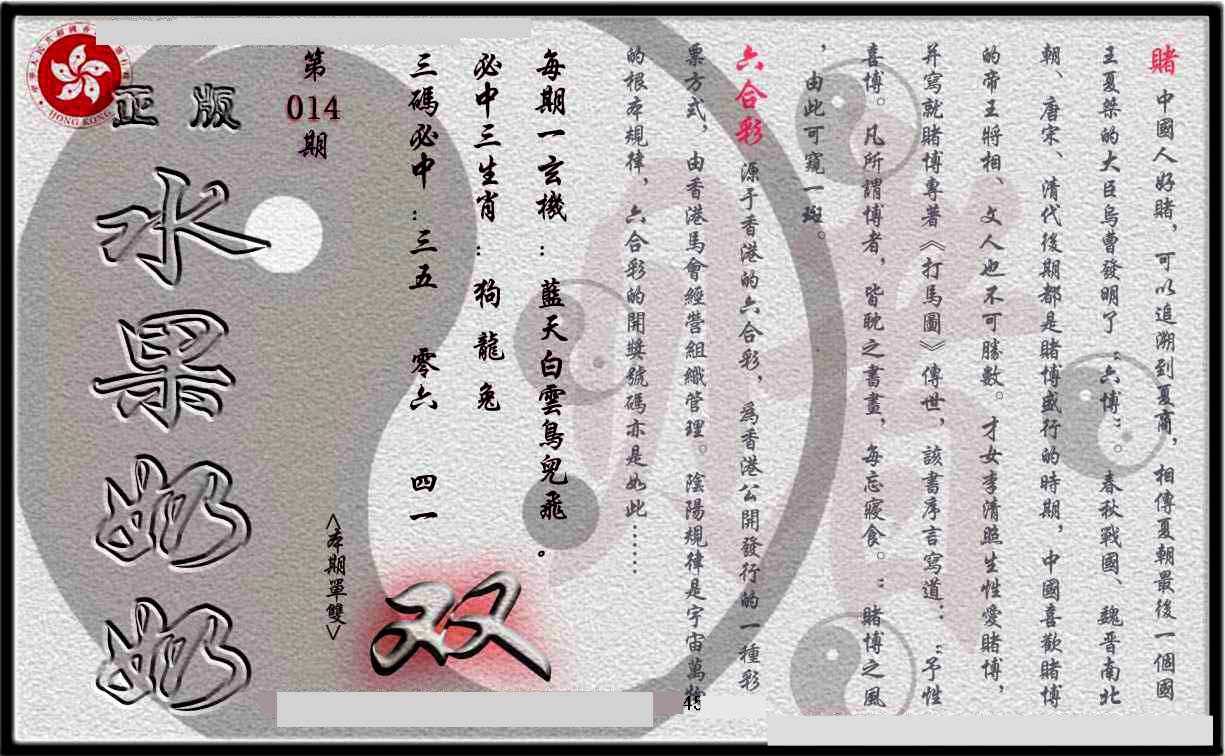 賭 中國人好賭，可以追溯到夏商，相傳夏朝最後一個國
王夏桀的大臣烏曹發明了“六博”。春秋戰國、魏晉南北
朝、唐宋、清代後期都是賭博盛行的時期，中國喜歡賭博
的帝王將相、文人也不可勝數。才女李清照生性愛賭博，
并寫就賭博專著《打馬圖》傳世，該書序言寫道：“予性
喜博。凡所謂博者，皆耽之書畫，每忘寢食。”賭博之風
，由此可窺一斑。
六合彩 源于香港的六合彩，爲香港公開發行的一種彩
票方式，由香港馬會經營組織管理。陰陽規律是宇宙萬物
的根本規律，六合彩的開獎號碼亦是如此……
每期一玄機：藍天白雲鳥兒飛。
必中三生肖：狗 龍 兔
三碼必中：三五 零六 四一
双
<本期單雙>
第014期
正版
水果奶奶
HONG KONG